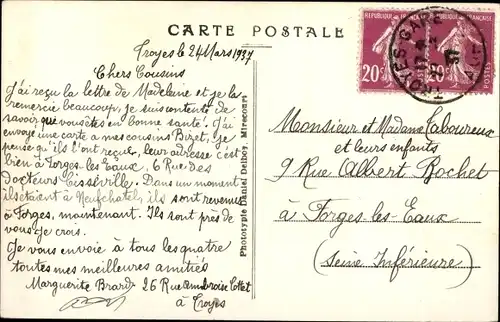 CARTE POSTALE
Troyes le 24 Mars 1937
Chers Cousins
J'ai reçu la lettre de Madeleine et je la
remercie beaucoup, je suis contente de
savoir que vous êtes en bonne santé! J'ai
envoyé une carte a mes cousins Bizet, je
pense qu'ils l'ont reçue, leur adresse c'est
bien à Forges les Eaux, 6 Rue des
Docteurs Cisséville. Dans un moment
ils étaient à Neufchatel, ils sont revenus
à Forges, maintenant. Ils sont près de
vous je crois.
Je vous envoie à tous les quatre
toutes mes meilleures amitiés
Marguerite Brard 26 Rue Ambroise Cottet
à Troyes
Phototypie Daniel Delboy, Mirecourt
REPUBLIQUE FRANÇAISE
20c 20c
POSTES
TROYES GARE
AUBE
37
Monsieur et Madame Laboureux
et leurs enfants
9 Rue Albert Bochet
à Forges-les-Eaux
(Seine Inférieure)